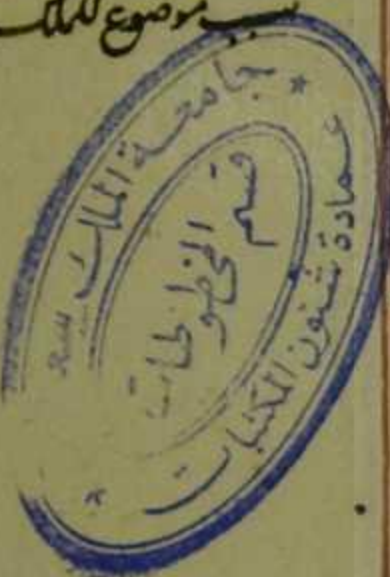 موضوع للملك
جامعة الملك
عمادة شئون المكتبات
قسم
المخطوطات